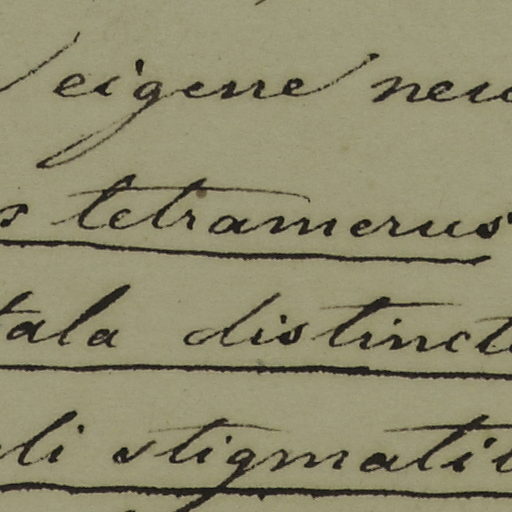 eigene neu
s tetramerus
tala distincta
li stigmati